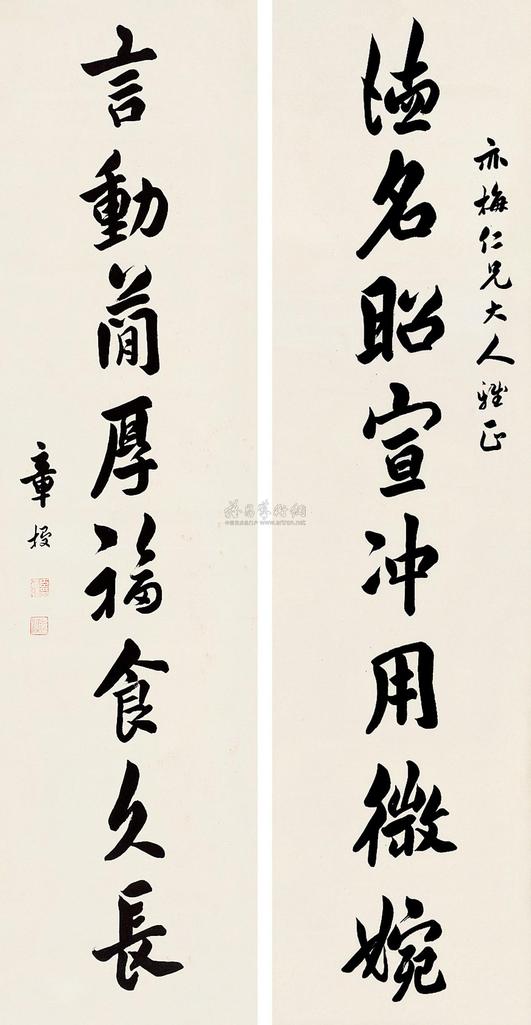 亦梅仁兄大人雅正
德名昭宣冲用微婉
言動簡厚福食久長
章梫
雅昌藝術網
www.artron.net